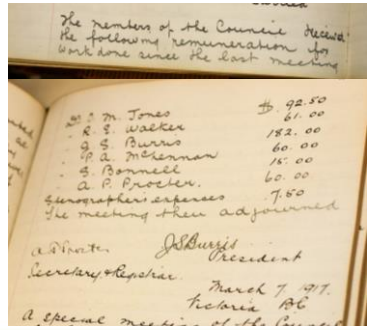 The members of the Council Received
the following remuneration for
work done since the last meeting
M. Jones $ 92.50
R. E. Walker 61.00
J. S. Burris 182.00
P. A. McLennan 60.00
S. Bonnell 15.00
A. P. Procter. 60.00
Stenographer's expenses 7.50
The meeting then adjourned
J S Burris
A P Procter President
Secretary & Registrar.
March 7 1917.
Victoria BC
A special meeting of the Council